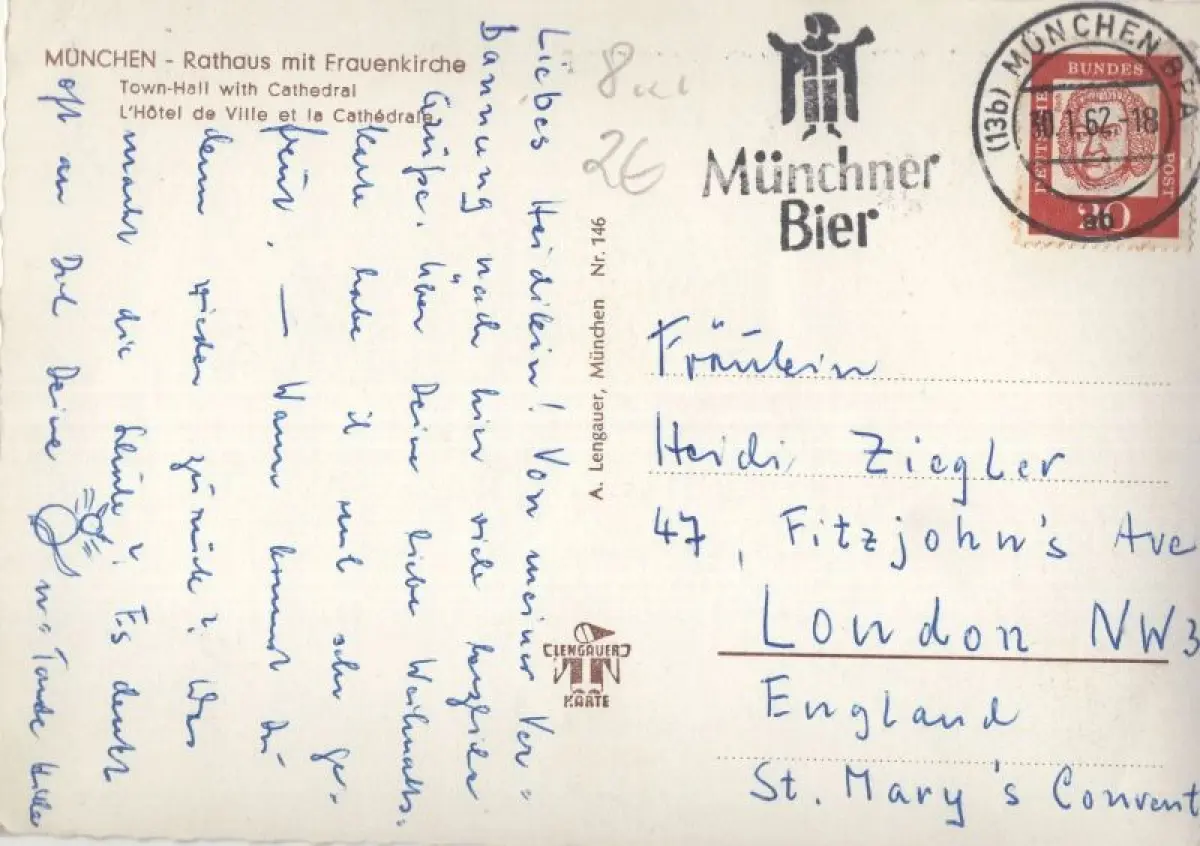 MÜNCHEN - Rathaus mit Frauenkirche
Town-Hall with Cathedral
L'Hôtel de Ville et la Cathédrale
Liebes Heidilein! Von meiner Ver-
bannung nach hier viele herzliche
Grüße. Über Deine liebe Weihnachts-
karte habe ich mich sehr ge-
freut. — Wann kommst Du
denn wieder zurück? Was
macht die Schule? Es denkt
oft an Dich Deine
u. Tante Hilde
8
2€
A. Lengauer, München Nr. 146
LENGAUER
KARTE
Münchner
Bier
(13b) MÜNCHEN BPA
30.1.62-18
ab
DEUTSCHE
BUNDES
POST
20
Fräulein
Heidi Ziegler
47, Fitzjohn's Ave
London NW3
England
St. Mary's Convent